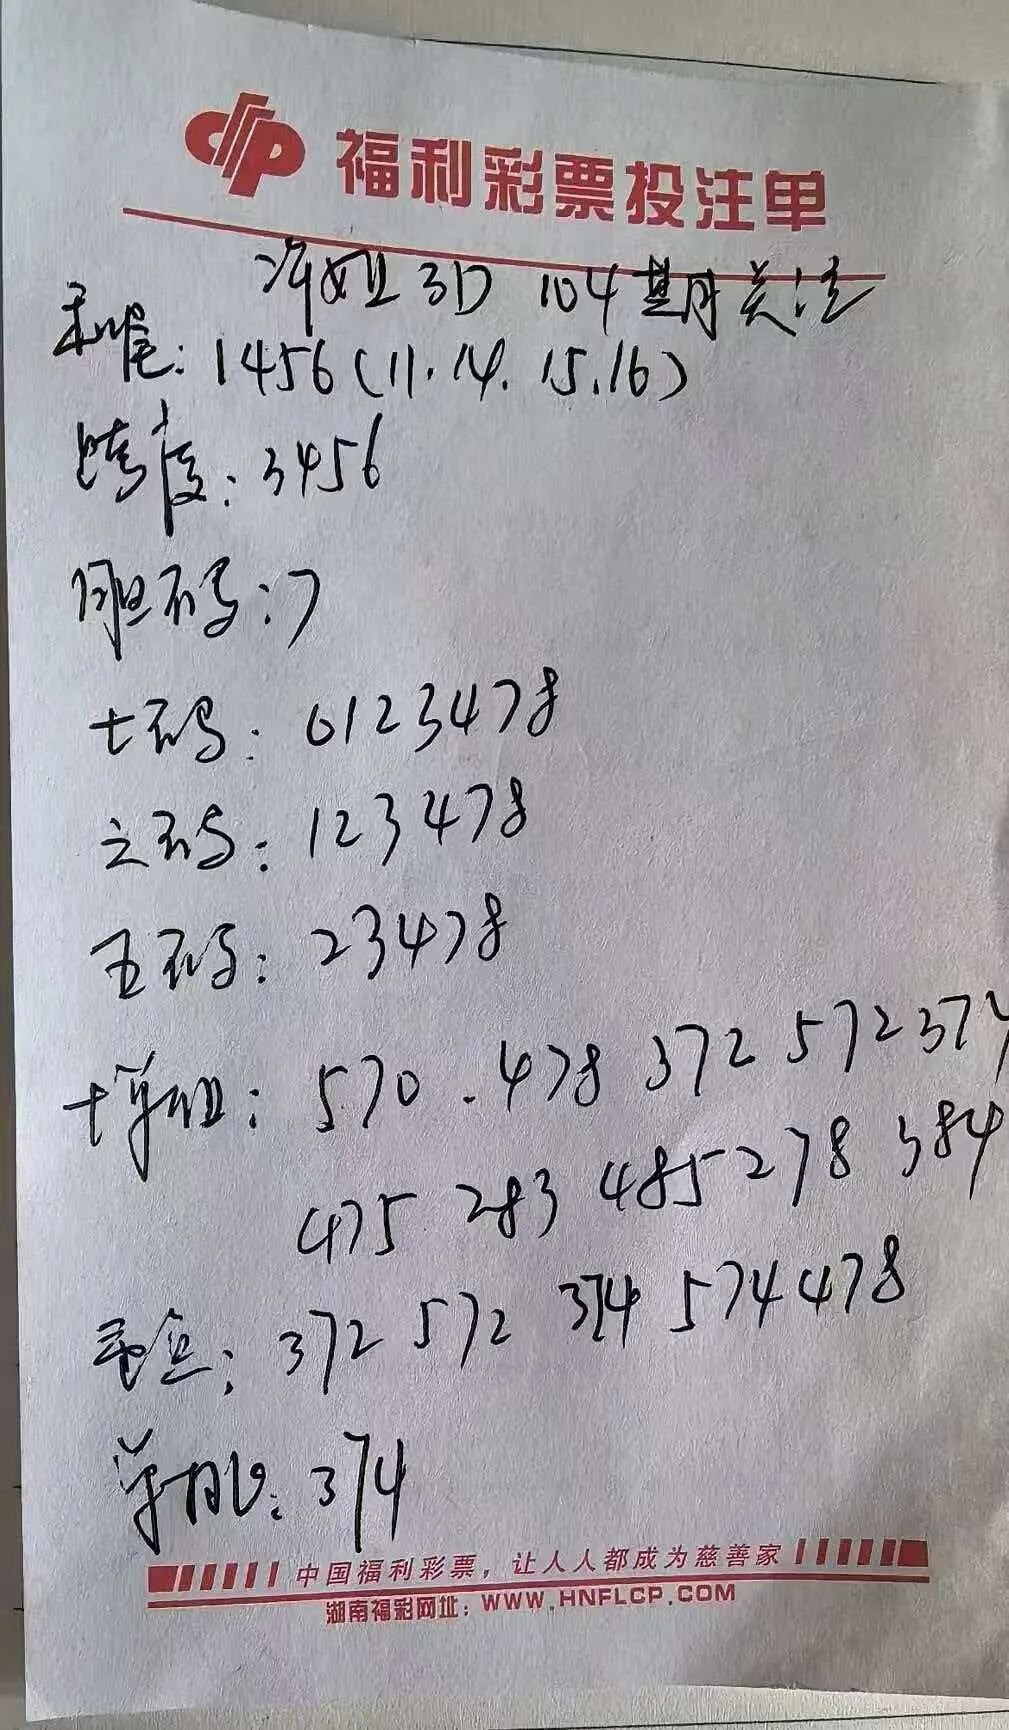 福利彩票投注单
海姐3D 104期关注
和尾:1456(11.14.15.16)
跨度:3456
胆码:7
七码:0123478
六码:123478
五码:23478
十单组:570.478 372 572 374
475 283 485 278 384
重点:372 572 374 574 478
单挑:374
中国福利彩票,让人人都成为慈善家
湖南福彩网址:WWW.HNFLCP.COM